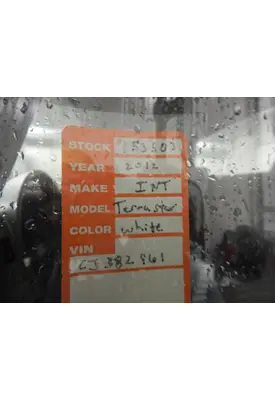 STOCK 153503
YEAR 2012
MAKE INT
MODEL Terrastar
COLOR white
VIN
CJ382961